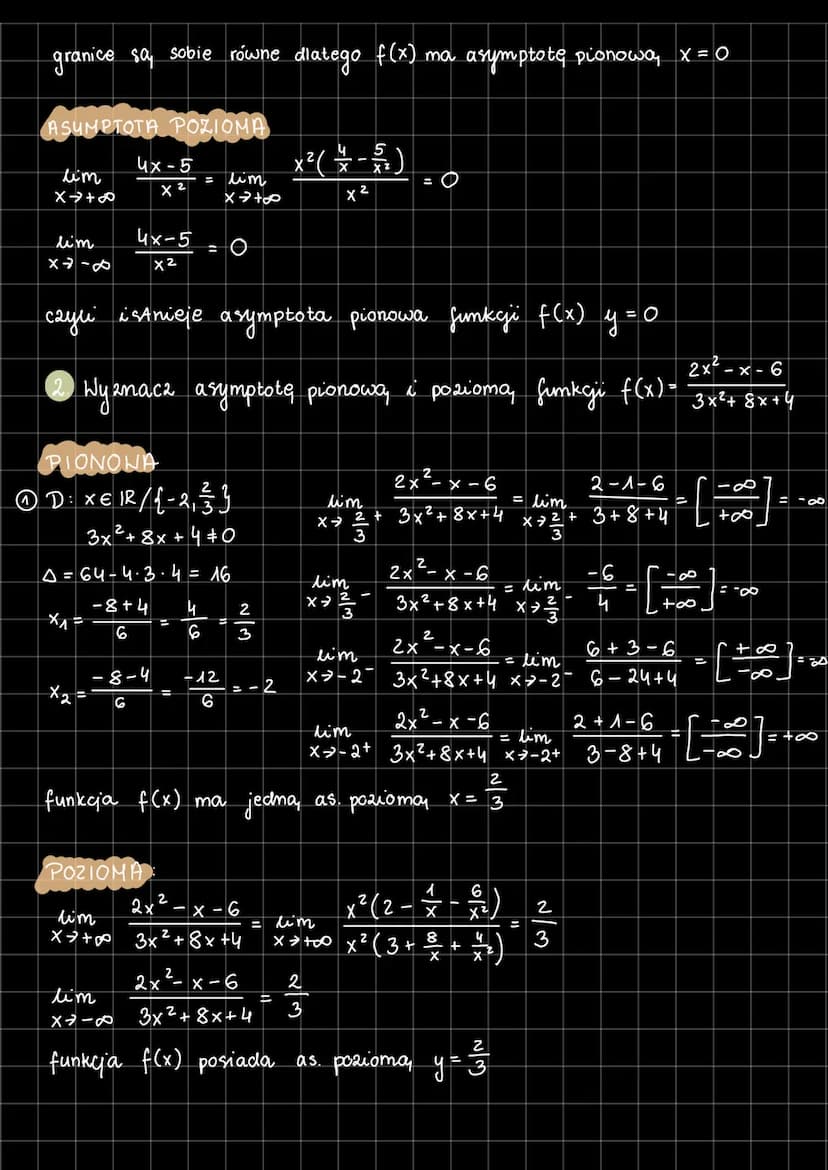 granice są sobie równe dlatego f(x) ma asymptotę pionową x = 0
ASYMPTOTA POZIOMA
lim x→+∞ (4x-5)/x² = lim x→+∞ x²(4/x - 5/x²)/x² = 0
lim x→-∞ (4x-5)/x² = 0
czyli istnieje asymptota pionowa funkcji f(x) y = 0
2 Wyznacz asymptotę pionową i poziomą funkcji f(x) = (2x² - x - 6)/(3x² + 8x + 4)
PIONOWA
① D: x ∈ IR/{-2, 2/3}
3x² + 8x + 4 ≠ 0
Δ = 64 - 4·3·4 = 16
x₁ = (-8+4)/6 = 4/6 = 2/3
x₂ = (-8-4)/6 = -12/6 = -2
lim x→2/3+ (2x² - x - 6)/(3x² + 8x + 4) = lim x→2/3+ (2-1-6)/(3+8+4) = [-∞/+∞] = -∞
lim x→2/3- (2x² - x - 6)/(3x² + 8x + 4) = lim x→2/3- -6/4 = [-∞/+∞] = -∞
lim x→-2- (2x² - x - 6)/(3x² + 8x + 4) = lim x→-2- (6+3-6)/(6-24+4) = [+∞/-∞] = -∞
lim x→-2+ (2x² - x - 6)/(3x² + 8x + 4) = lim x→-2+ (2+1-6)/(3-8+4) = [-∞/-∞] = +∞
funkcja f(x) ma jedną as. poziomą x = 2/3
POZIOMA:
lim x→+∞ (2x² - x - 6)/(3x² + 8x + 4) = lim x→+∞ x²(2 - 1/x - 6/x²)/x²(3 + 8/x + 4/x²) = 2/3
lim x→-∞ (2x² - x - 6)/(3x² + 8x + 4) = 2/3
funkcja f(x) posiada as. poziomą y = 2/3